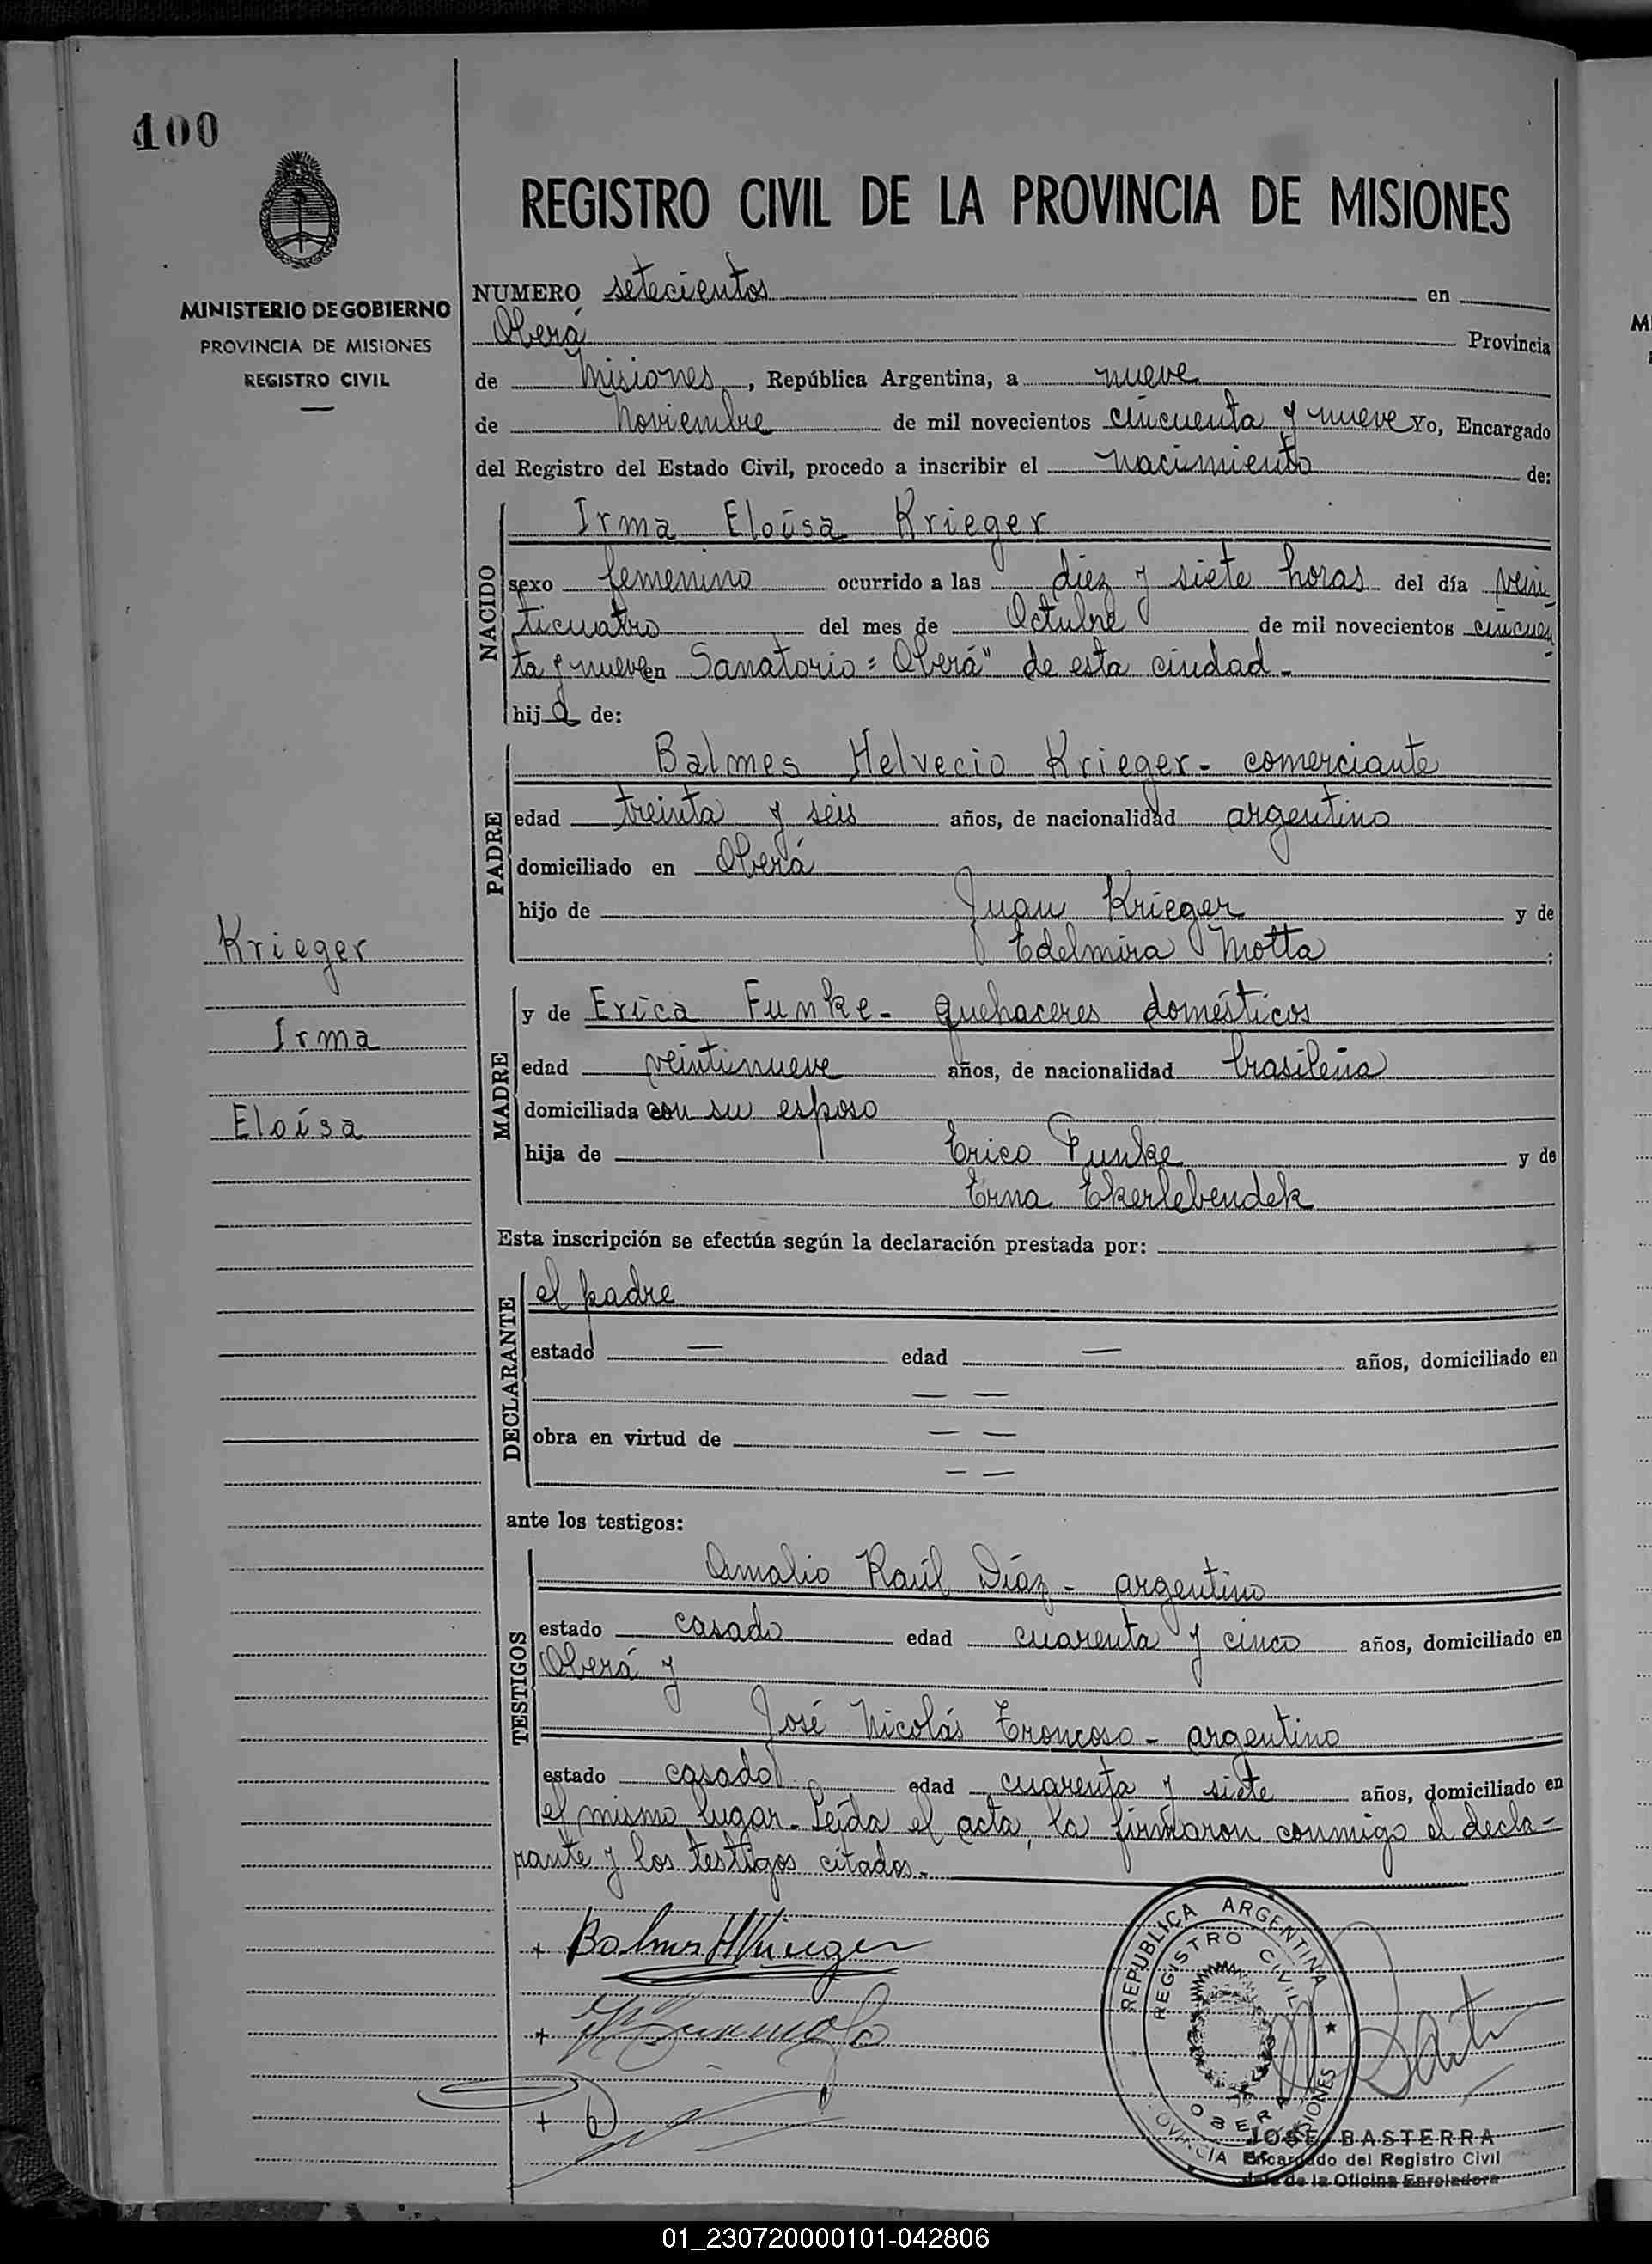 100
MINISTERIO DE GOBIERNO
PROVINCIA DE MISIONES
REGISTRO CIVIL
REGISTRO CIVIL DE LA PROVINCIA DE MISIONES
NUMERO setecientos en
Oberá Provincia
de Misiones, República Argentina, a nueve
de Noviembre de mil novecientos cincuenta y nueve Yo, Encargado
del Registro del Estado Civil, procedo a inscribir el nacimiento de:
NACIDO
Irma Eloísa Krieger
sexo femenino ocurrido a las diez y siete horas del día vein
ticuatro del mes de Octubre de mil novecientos cincuen
ta y nueve en Sanatorio = Oberá" de esta ciudad.-
hija de:
PADRE
Balmes Helvecio Krieger- comerciante
edad treinta y seis años, de nacionalidad argentino
domiciliado en Oberá
hijo de Juan Krieger y de
Edelmira Motta ;
Krieger
Irma
Eloísa
MADRE
y de Erica Funke- quehaceres domésticos
edad veintinueve años, de nacionalidad brasileña
domiciliada con su esposo
hija de Erico Funke y de
Erna Ekerlebendek
Esta inscripción se efectúa según la declaración prestada por:
DECLARANTE
el padre
estado — edad — años, domiciliado en
— —
obra en virtud de — —
— —
ante los testigos:
TESTIGOS
Amalio Raúl Díaz - argentino
estado casado edad cuarenta y cinco años, domiciliado en
Oberá y
José Nicolás Troncoso - argentino
estado casado edad cuarenta y siete años, domiciliado en
el mismo lugar.- Leída el acta, la firmaron conmigo el decla-
rante y los testigos citados.-
+ Balmes H Krieger
+
+
REPUBLICA ARGENTINA
REGISTRO CIVIL
OBERA
PROVINCIA MISIONES
JOSE BASTERRA
Encargado del Registro Civil
Jefe de la Oficina Enroladora
01_230720000101-042806